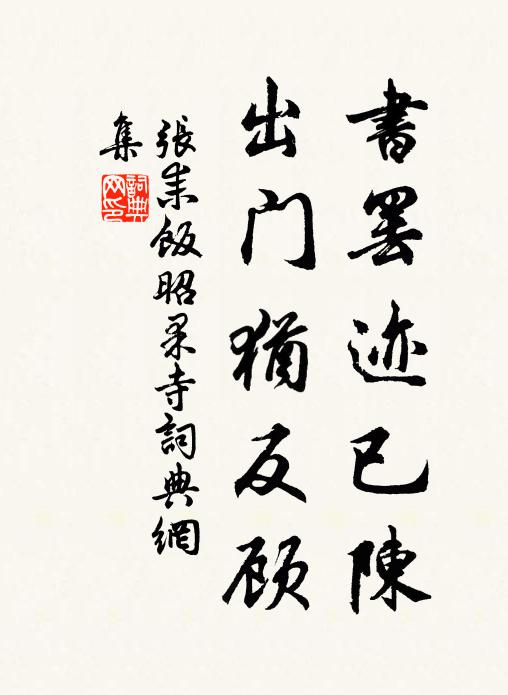 書罢迹已陳
出门猶反顾
張耒飯昭果寺詞典網
集
詞典
网印